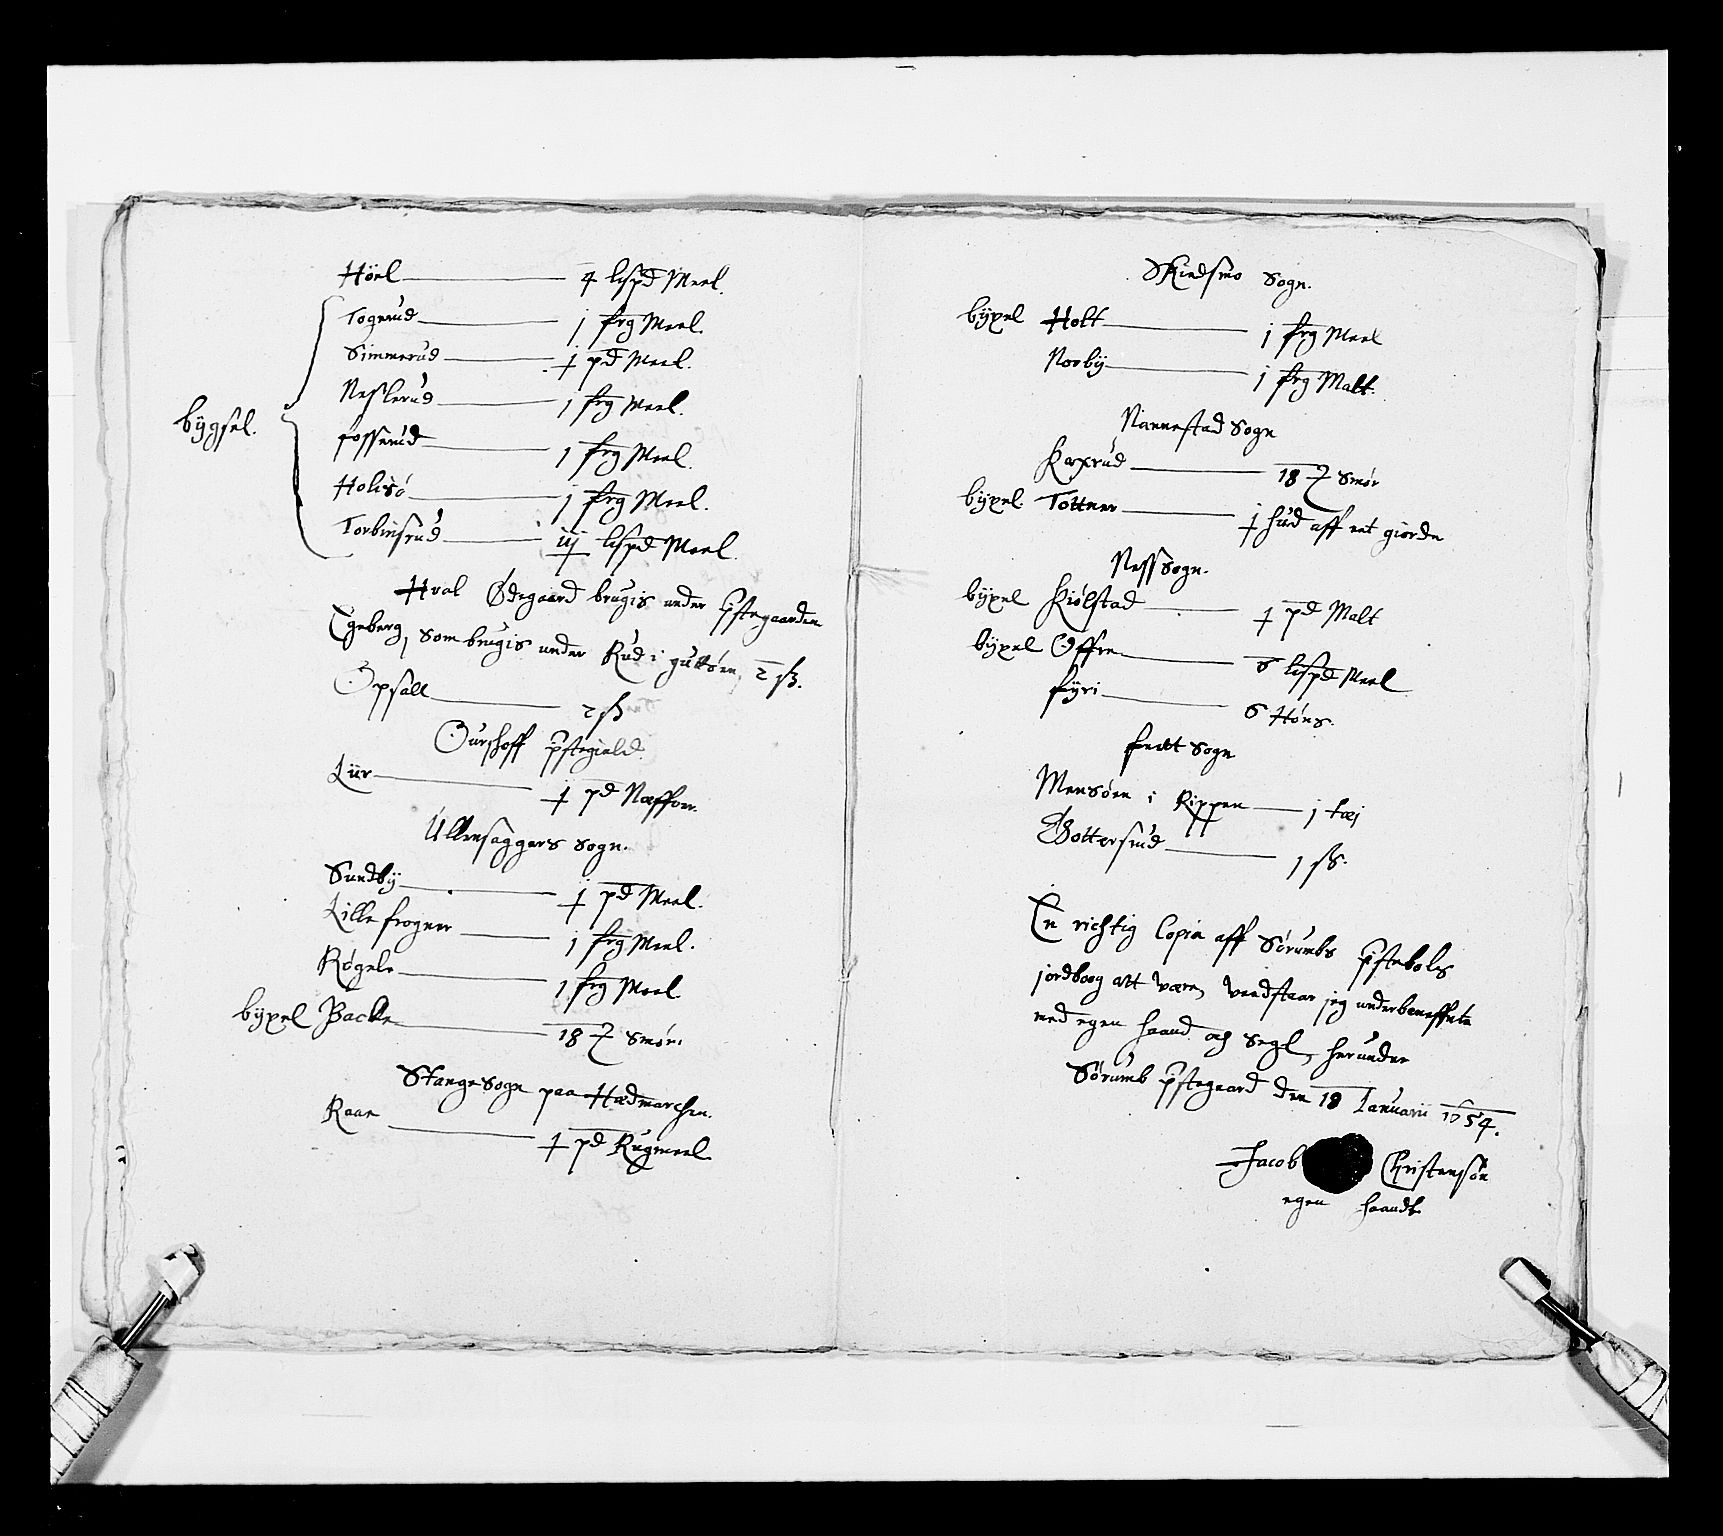 Höel 4 lispd Meel.
Togerud j frg Meel.
Simmerud ɉ pd Meel.
Neslerud 1 frg Meel.
bÿgsel.
fosserud 1 frg Meel.
Holisö j frg Meel.
Torbinsrud iij lispd Meel.
Hval Ødegaard brugis under pstegaarden
Egeberg, som brugis under Rud i guttöen, 2 ß.
Opsall 2 ß
Ourshoff pstegield.
Liir ɉ pd Næffuer.
Ullensaggers sogn.
Sundbÿ ɉ pd Meel.
Lille frogner j frg Meel.
Rögele 1 frg Meel
bÿxel Backe 18 smör.
Stange sogn paa Hedmarchen.
Raae ɉ pd Rugmeel
Skiedsmo sogn.
bÿxel Holt j frg Meel
Norbÿ j frg Malt.
Nannestad sogn
Karxrud 18 smör
bÿxel Tottner ɉ hud aff eet giörde
Ness sogn.
bÿxel Kiölstad ɉ pd Malt
bÿxel Offre 6 lispd Meel
fÿri 6 Höns.
feett sogn
Mensöen i Kippen j
Gottersrud 1 ß.
En richtig Copia aff Sörumbs pstebols
jordboog att være, vendstaar jeg underbeneffnte
med egen haand och segl, herunder
Sörumb pstegaard den 18 Januarii 1654.
Jacob Christensön
egen haandt